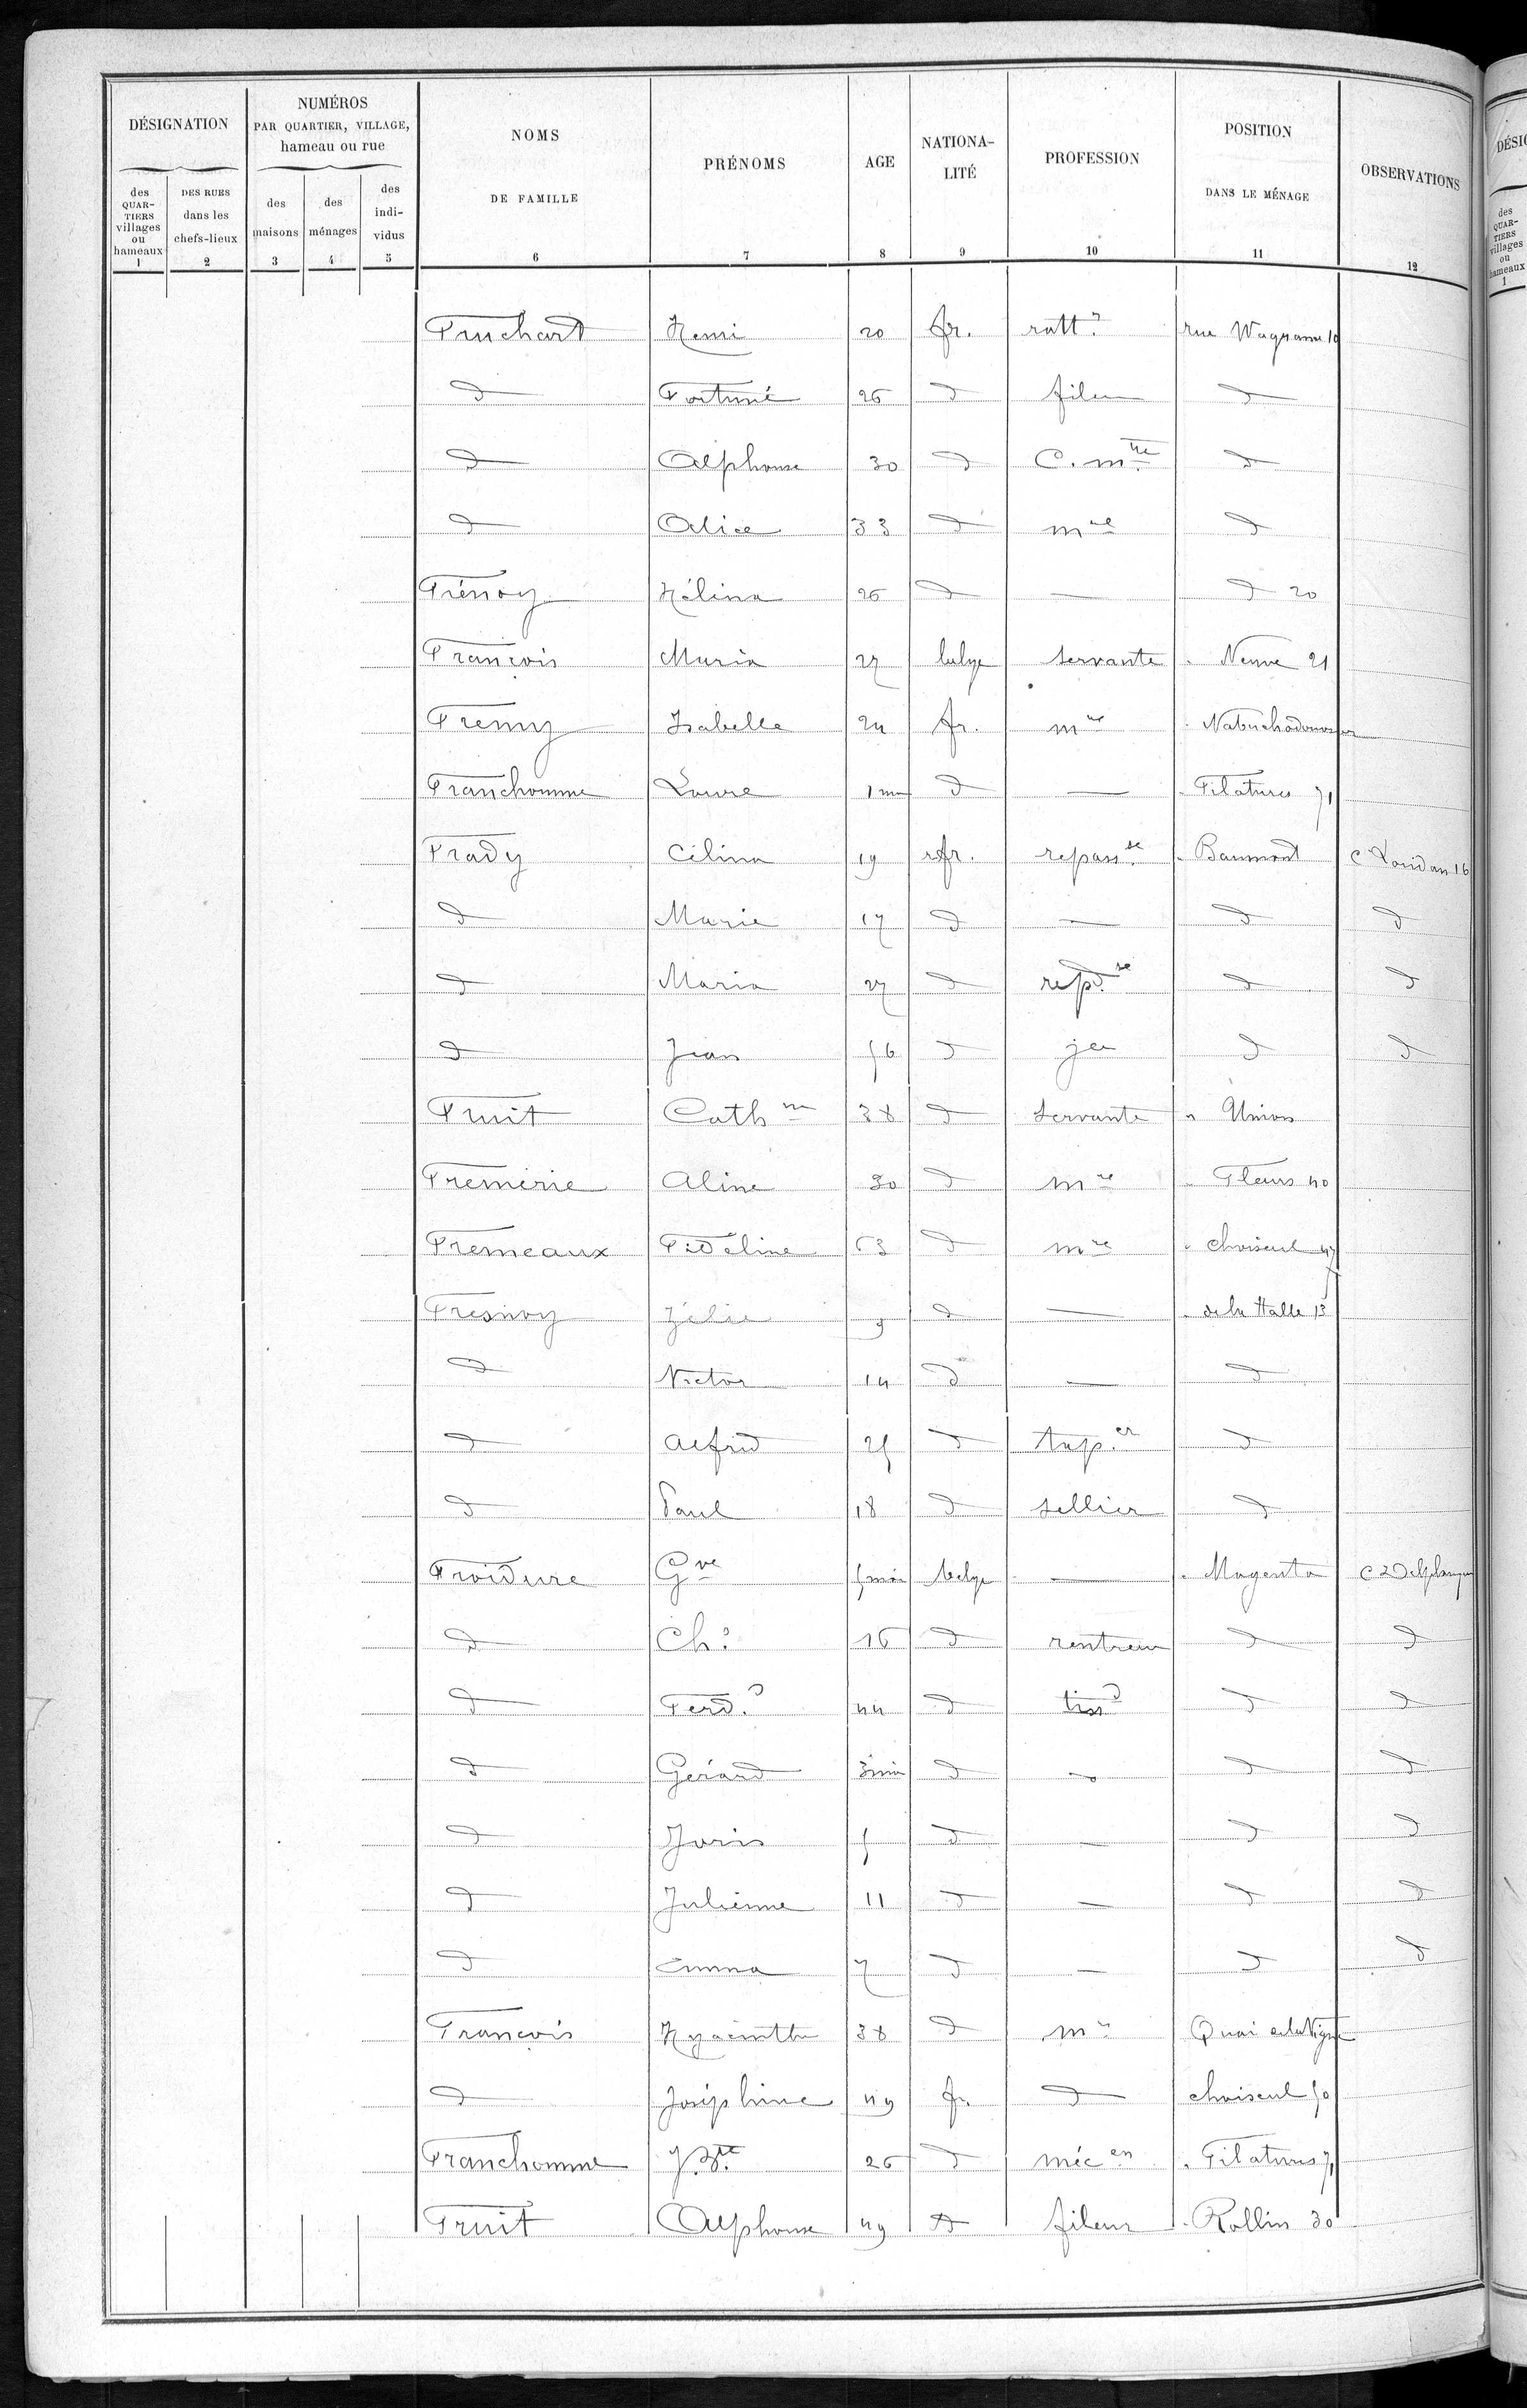 DÉSIGNATION
NUMÉROS
PAR QUARTIER, VILLAGE,
hameau ou rue
NOMS
DE FAMILLE
PRÉNOMS
AGE
NATIONA-
LITÉ
PROFESSION
POSITION
DANS LE MÉNAGE
OBSERVATIONS
des
QUAR-
TIERS
villages
ou
hameaux
DES RUES
dans les
chefs-lieux
des
maisons
des
ménages
des
indi-
vidus
1 2 3 4 5 6 7 8 9 10 11 12
Fruchart Henri 20 fr. ratt.r rue Wagram 10
d Fortuné 26 d fileur d
d Alphonse 30 d C. mtre d
d Alice 33 d mre d
Frénoy Hélina 26 d — d 20
François Maria 27 belge servante " Neuve 21
Fremy Isabelle 24 fr. mre " Nabuchodonosor
Franchomme Louise 1 m d — " Filatures 71
Frady Célina 19 fr. repass.se " Baumont C Loridan 16
d Marie 17 d — d d
d Maria 27 d repd.se d d
d Jean 56 d jer d d
Fruit Cathne 38 d servante " Union
Fremerie Aline 30 d mre " Fleurs 40
Fremeaux Fidéline 63 d mre " choiseul 47
Fresnoy Zélie 9 d — " de la Halle 13
d Victor 14 d — d
d Alfred 25 d tap.er d
d Paul 18 d sellier d
Froidure Gve 5 mois belge — " Magenta C Delplanque
d Ch.s 16 d rentreur d d
d Ferd.d 44 d tissd d d
d Gérard 3 mois d — d d
d Joris 5 d — d d
d Julienne 11 d — d d
d Emma 7 d — d d
François Hyacinthe 38 d mre Quai de la Vigne
d Joséphine 49 fr. d choiseul 50
Franchomme J. Bte 26 d mécen " Filatures 71
Fruit Alphonse 49 d fileur " Rollin 30